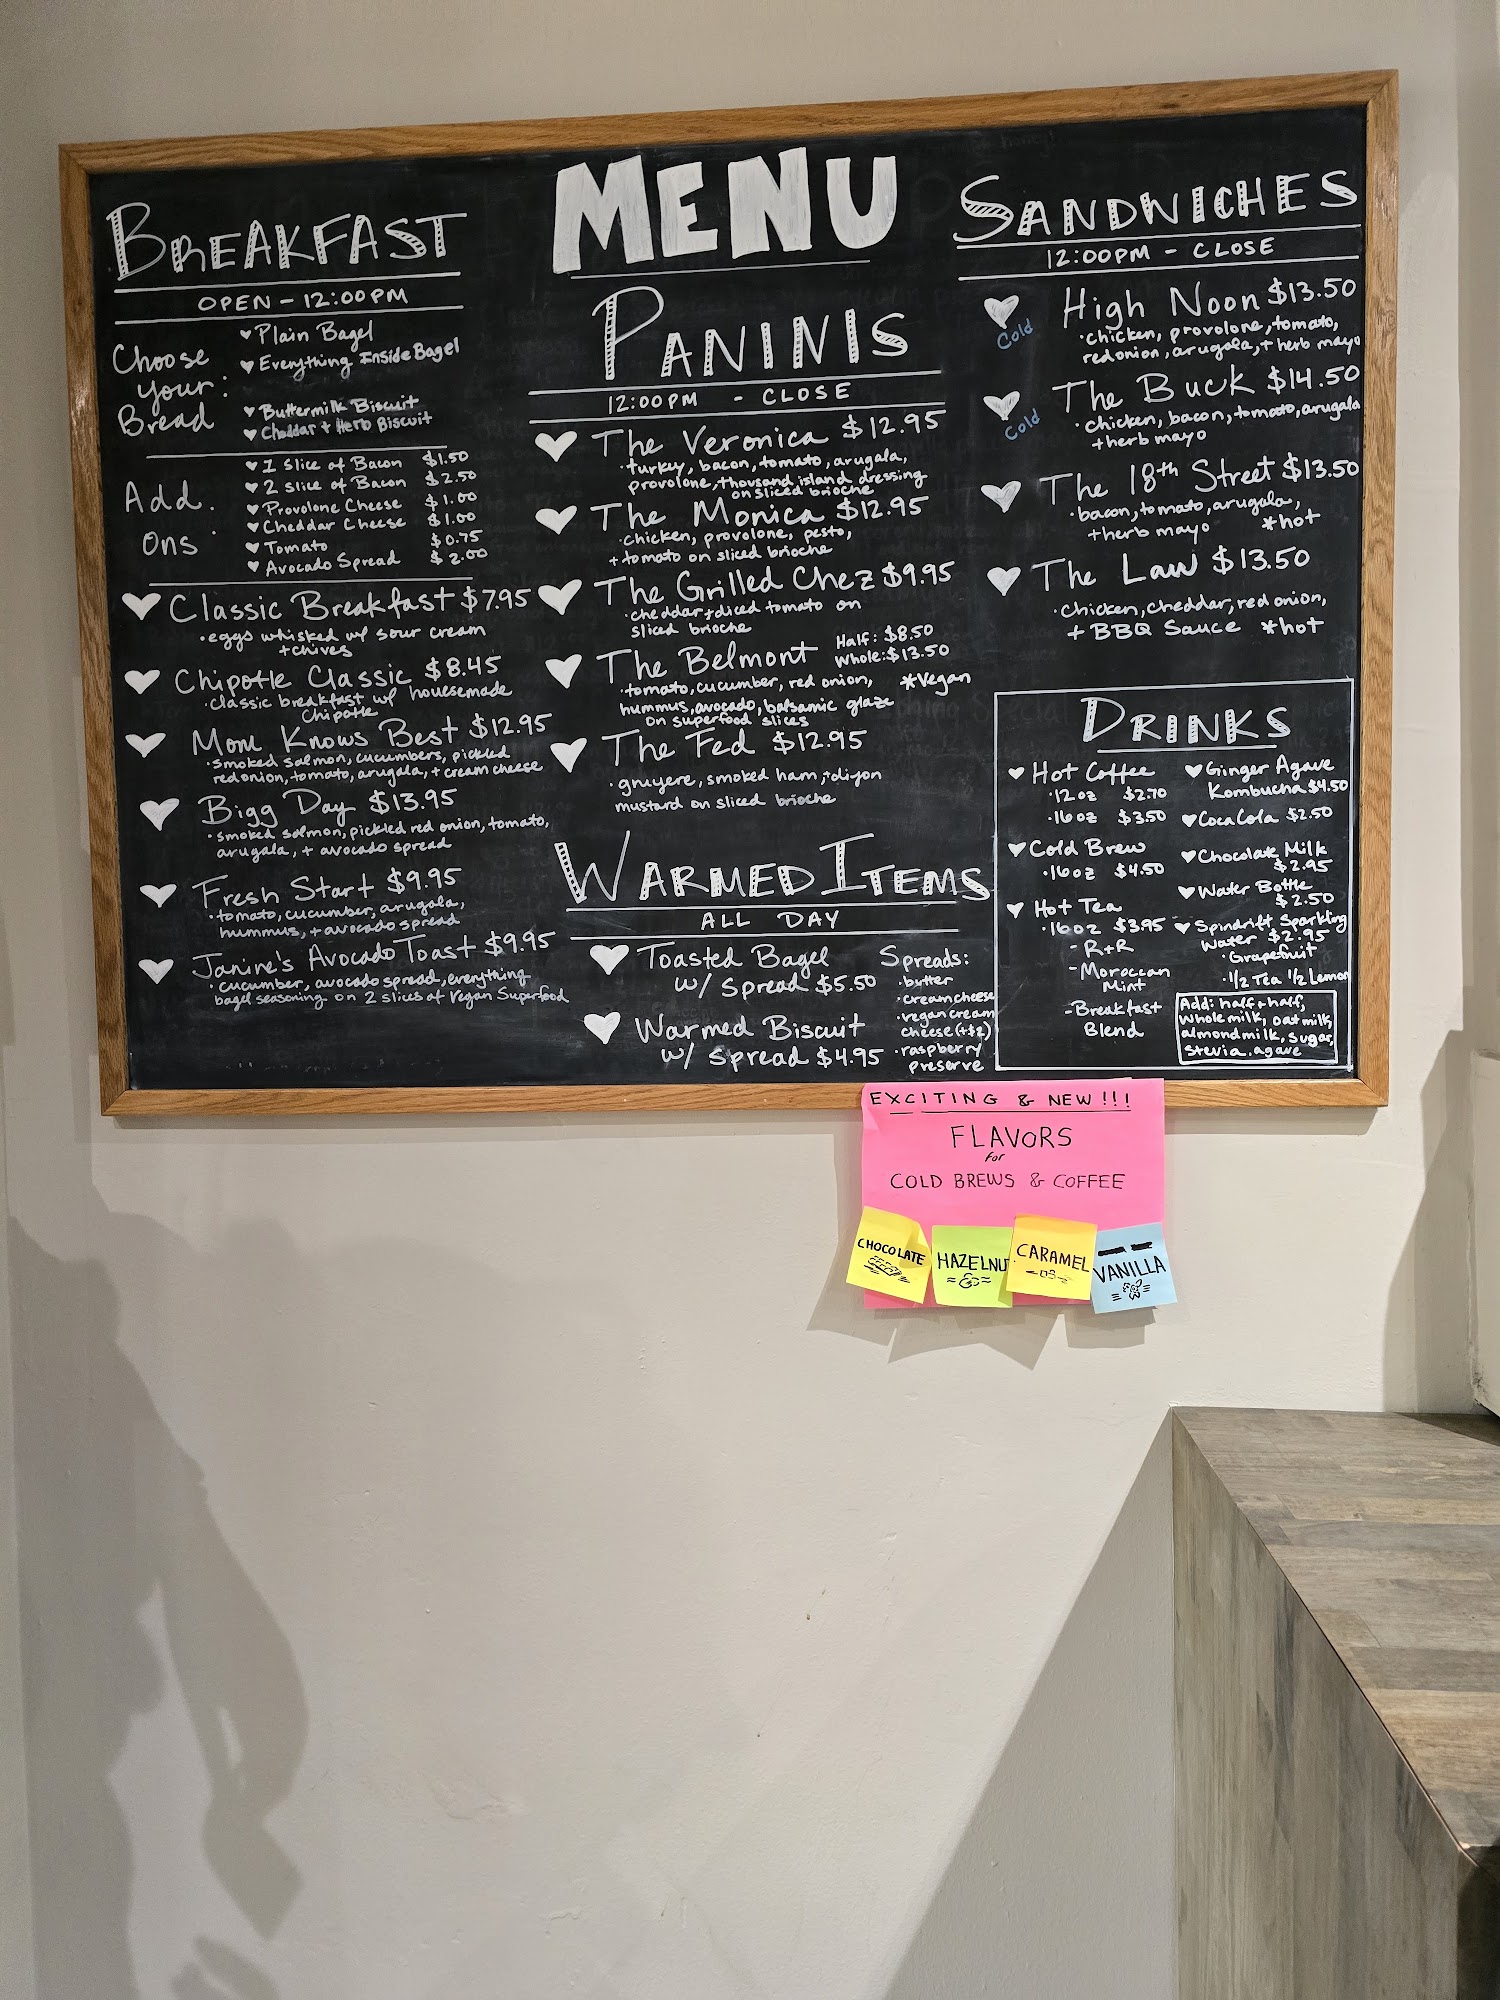 MENU
BREAKFAST
OPEN - 12:00PM
Choose
your:
Bread
♥ Plain Bagel
♥ Everything Inside Bagel
♥ Buttermilk Biscuit
♥ Cheddar + Herb Biscuit
Add.
ons:
♥ 1 slice of Bacon $1.50
♥ 2 slice of Bacon $2.50
♥ Provolone Cheese $1.00
♥ Cheddar Cheese $1.00
♥ Tomato $0.75
♥ Avocado Spread $2.00
♥ Classic Breakfast $7.95
· eggs whisked w/ sour cream
+ chives
♥ Chipotle Classic $8.45
· classic breakfast w/ housemade
Chipotle
♥ Mom Knows Best $12.95
· smoked salmon, cucumbers, pickled
red onion, tomato, arugula, + cream cheese
♥ Bigg Day $13.95
· smoked salmon, pickled red onion, tomato,
arugula, + avocado spread
♥ Fresh Start $9.95
· tomato, cucumber, arugula,
hummus, + avocado spread
♥ Janine's Avocado Toast $9.95
· cucumber, avocado spread, everything
bagel seasoning on 2 slices of Vegan Superfood
PANINIS
12:00PM - CLOSE
♥ The Veronica $12.95
· turkey, bacon, tomato, arugula,
provolone, thousand island dressing
on sliced brioche
♥ The Monica $12.95
· chicken, provolone, pesto,
+ tomato on sliced brioche
♥ The Grilled Chez $9.95
· cheddar + diced tomato on
sliced brioche
♥ The Belmont Half: $8.50
Whole: $13.50
· tomato, cucumber, red onion, *Vegan
hummus, avocado, balsamic glaze
on superfood slices
♥ The Fed $12.95
· gruyere, smoked ham, + dijon
mustard on sliced brioche
WARMED ITEMS
ALL DAY
♥ Toasted Bagel
w/ Spread $5.50
♥ Warmed Biscuit
w/ Spread $4.95
Spreads:
· butter
· cream cheese
· vegan cream
cheese (+$2)
· raspberry
preserve
SANDWICHES
12:00PM - CLOSE
♥ High Noon $13.50
Cold
· chicken, provolone, tomato,
red onion, arugula, + herb mayo
♥ The Buck $14.50
Cold
· chicken, bacon, tomato, arugula
+ herb mayo
♥ The 18th Street $13.50
· bacon, tomato, arugula,
+ herb mayo *hot
♥ The Law $13.50
· chicken, cheddar, red onion,
+ BBQ Sauce *hot
DRINKS
♥ Hot Coffee
· 12oz $2.70
· 16oz $3.50
♥ Cold Brew
· 16oz $4.50
♥ Hot Tea
· 16oz $3.95
- R+R
- Moroccan
Mint
- Breakfast
Blend
♥ Ginger Agave
Kombucha $4.50
♥ Coca Cola $2.50
♥ Chocolate Milk
$2.95
♥ Water Bottle
$2.50
♥ Spindrift Sparkling
Water $2.95
· Grapefruit
· 1/2 Tea 1/2 Lemon
Add: half + half,
whole milk, oat milk,
almond milk, sugar,
stevia, agave
EXCITING & NEW!!!
FLAVORS
for
COLD BREWS & COFFEE
CHOCOLATE
HAZELNU
CARAMEL
VANILLA